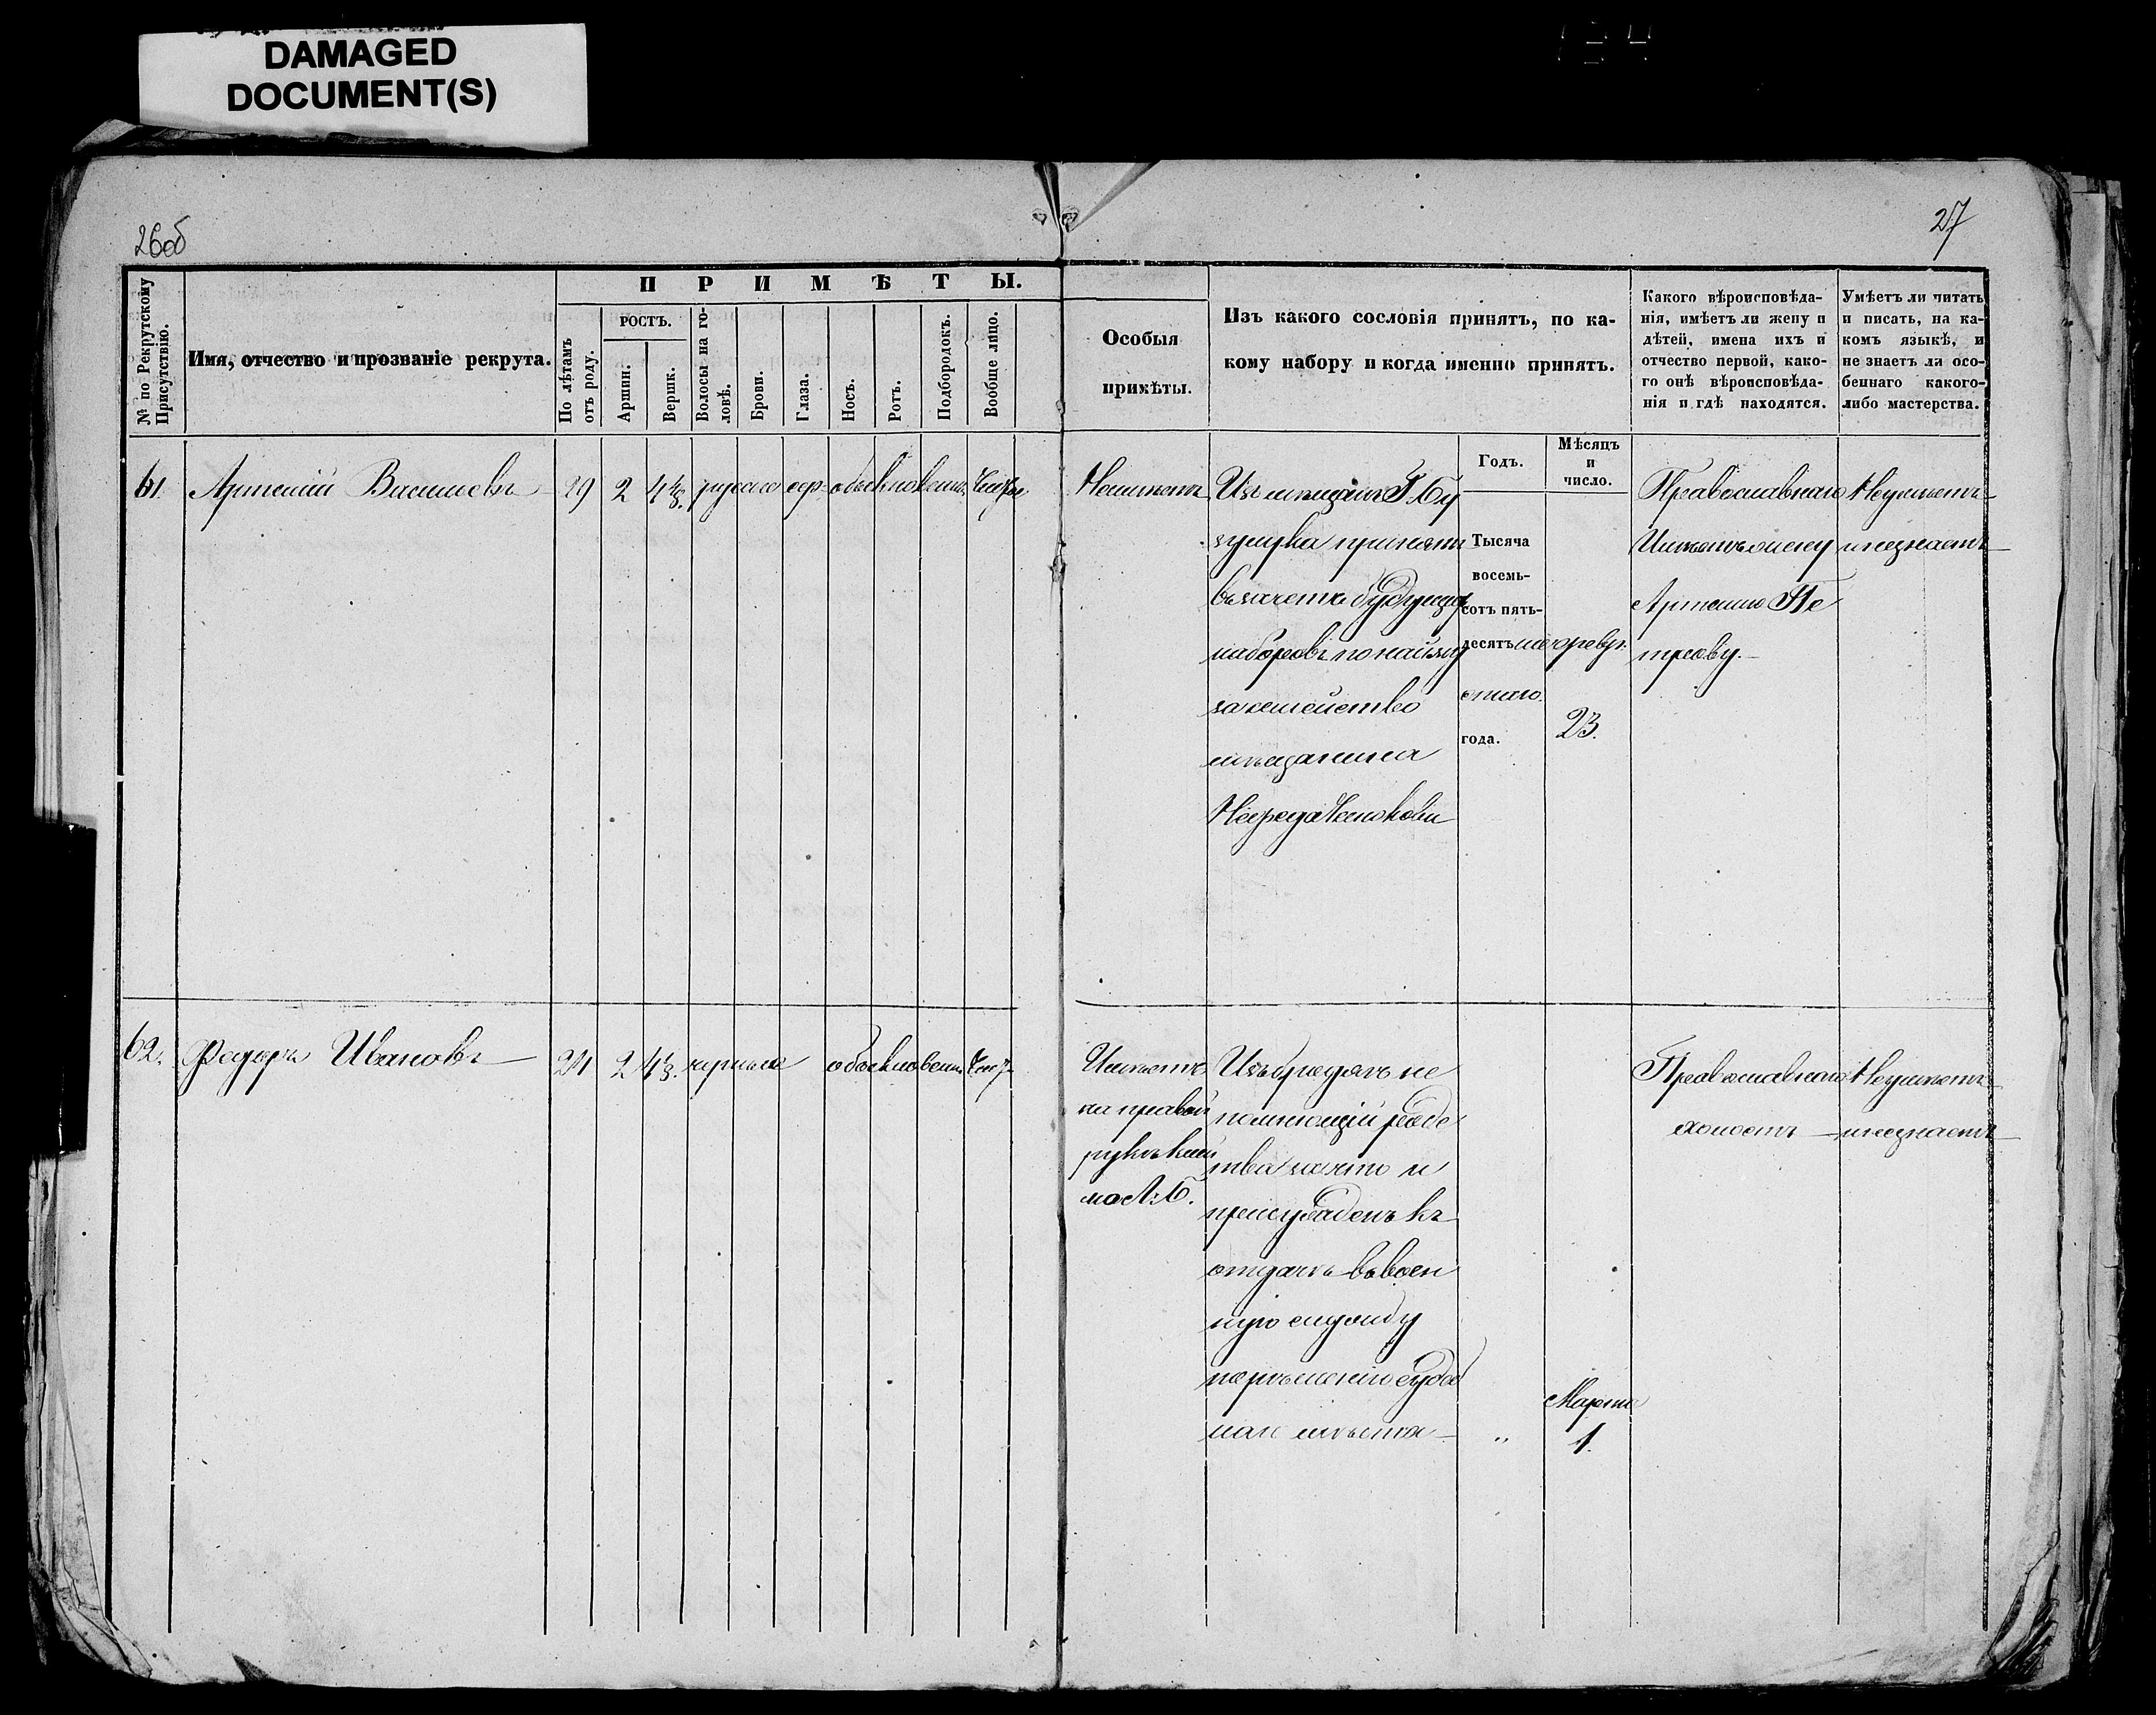 DAMAGED
DOCUMENT(S)
26об
27
№ по Рекрутскому
Присутствію.
Имя, отчество и прозваніе рекрута.
ПРИМѢТЫ.
По лѣтамъ
отъ роду.
РОСТЪ.
Аршин.
Вершк.
Волосы на го-
ловѣ.
Брови.
Глаза.
Носъ.
Ротъ.
Подбородокъ.
Вообще лицо.
Особыя
примѣты.
Изъ какого сословія принятъ, по ка-
кому набору и когда именно принятъ.
Какого вѣроисповѣда-
нія, имѣетъ ли жену и
дѣтей, имена ихъ и
отчество первой, како-
го онѣ вѣроисповѣда-
нія и гдѣ находятся.
Умѣетъ ли читать
и писать, на ка-
комъ языкѣ, и
не знаетъ ли осо-
беннаго какого-
либо мастерства.
Годъ.
Мѣсяцъ
и
число.
61.
Артемій Васильевъ
29
2
русыя
сер.
обыкновен.
Неимѣетъ
Изъ мѣщанъ Г. Бу
зулука принятъ
въ зачетъ будущихъ
наборовъ по найму
за семейство
мѣщанина
Тысяча
восемь-
сотъ пять-
десятъ шестаго
года.
Февр.
23.
Православнаго
Имѣетъ жену
Пе
трову.
Неумѣетъ
и незнаетъ
62.
Федоръ Ивановъ
21
2
черныя
обыкновен.
Имѣетъ
на правой
рукѣ клей
мо
Изъ бродягъ не
помнющій родс
тва
присужденъ къ
отдачѣ въ воен
ную службу
по рѣшенію судеб
наго мѣста
"
Марта
1.
Православнаго
холостъ
Неумѣетъ
и незнаетъ